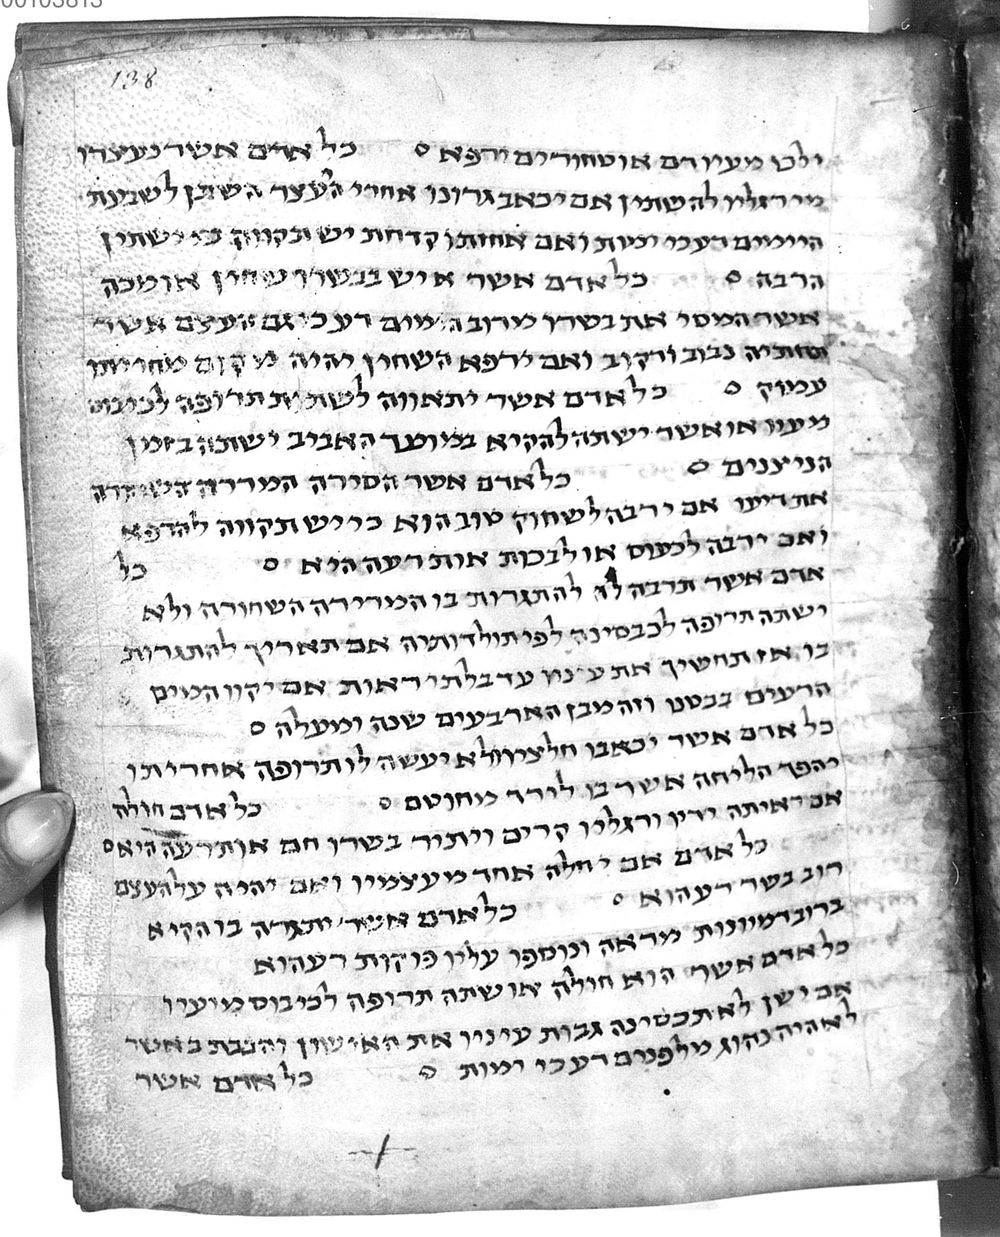 00103813
138
ילכו מעיו דם או טחורים ירפא ס כל אדם אשר נעצרו
מי רגליו להשתין אם יכאב גרונו אחרי העצר השתן לשבעת
הימים דע כי ימות ואם אחזתו קדחת יש תקווה כי ישתין
הרבה ס כל אדם אשר איש בבשרו שחין או מכה
אשר המסי את בשרו מרוב הימים דע כי גם העצם אשר
תחתיה נבוב ורקוב ואם ירפא השחין יהיה מקום
עמוק ס כל אדם אשר יתאווה לשתות תרופה לכיבוס
מעיו או אשר ישתה להקיא במועד האביב ישתה בזמן
הניצנים ס כל אדם אשר הסירה המררה השחורה
את דיעו אם ירבה לשחוק טוב הוא כי יש תקווה להרפא
ואם ירבה לכעוס או לבכות אות רעה היא ס כל
אדם אשר תרבה לו להתגרות בו המרירה השחורה ולא
ישתה תרופה לכבסינה לפי תולדותיה אם תאריך להתגרות
בו אז תחשיך את עיניו עד בלתי ראות אם יקוו המים
הרעים בבטנו וזה מבן הארבעים שנה ומעלה ס
כל אדם אשר יכאבו חלציו ולא יעשה לו תרופה אחריתו
יהפך הליחה אשר בו לירד מחוטם ס כל אדם חולה
אם ראיתה ידיו ורגליו קרים ויותר בשרו חם אות רעה היא ס
כל אדם אם יחלה אחד מעצמיו ואם יהיה על העצם
רוב בשר רע הוא ס כל אדם אשר יתגרה בו הקיא
ברוב דמיונות מראה ונוספו עליו פוקות רע הוא
כל אדם אשר הוא חולה או שתה תרופה לכיבוס מיעיו
אם ישן לא תכסינה גבות עיניו את האישון והבבת כאשר
לא היה נהוג מלפנים דע כי ימות ס כל אדם אשר